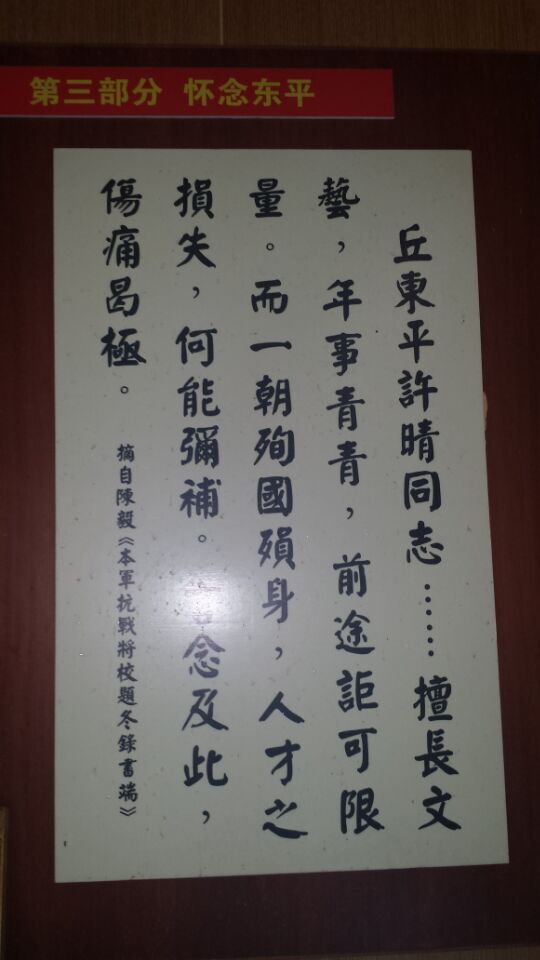 第三部分 怀念东平
丘東平許晴同志……擅長文
藝，年事青青，前途詎可限
量。而一朝殉國殞身，人才之
損失，何能彌補。念及此，
傷痛曷極。
摘自陳毅《本軍抗戰將校題冬錄書端》